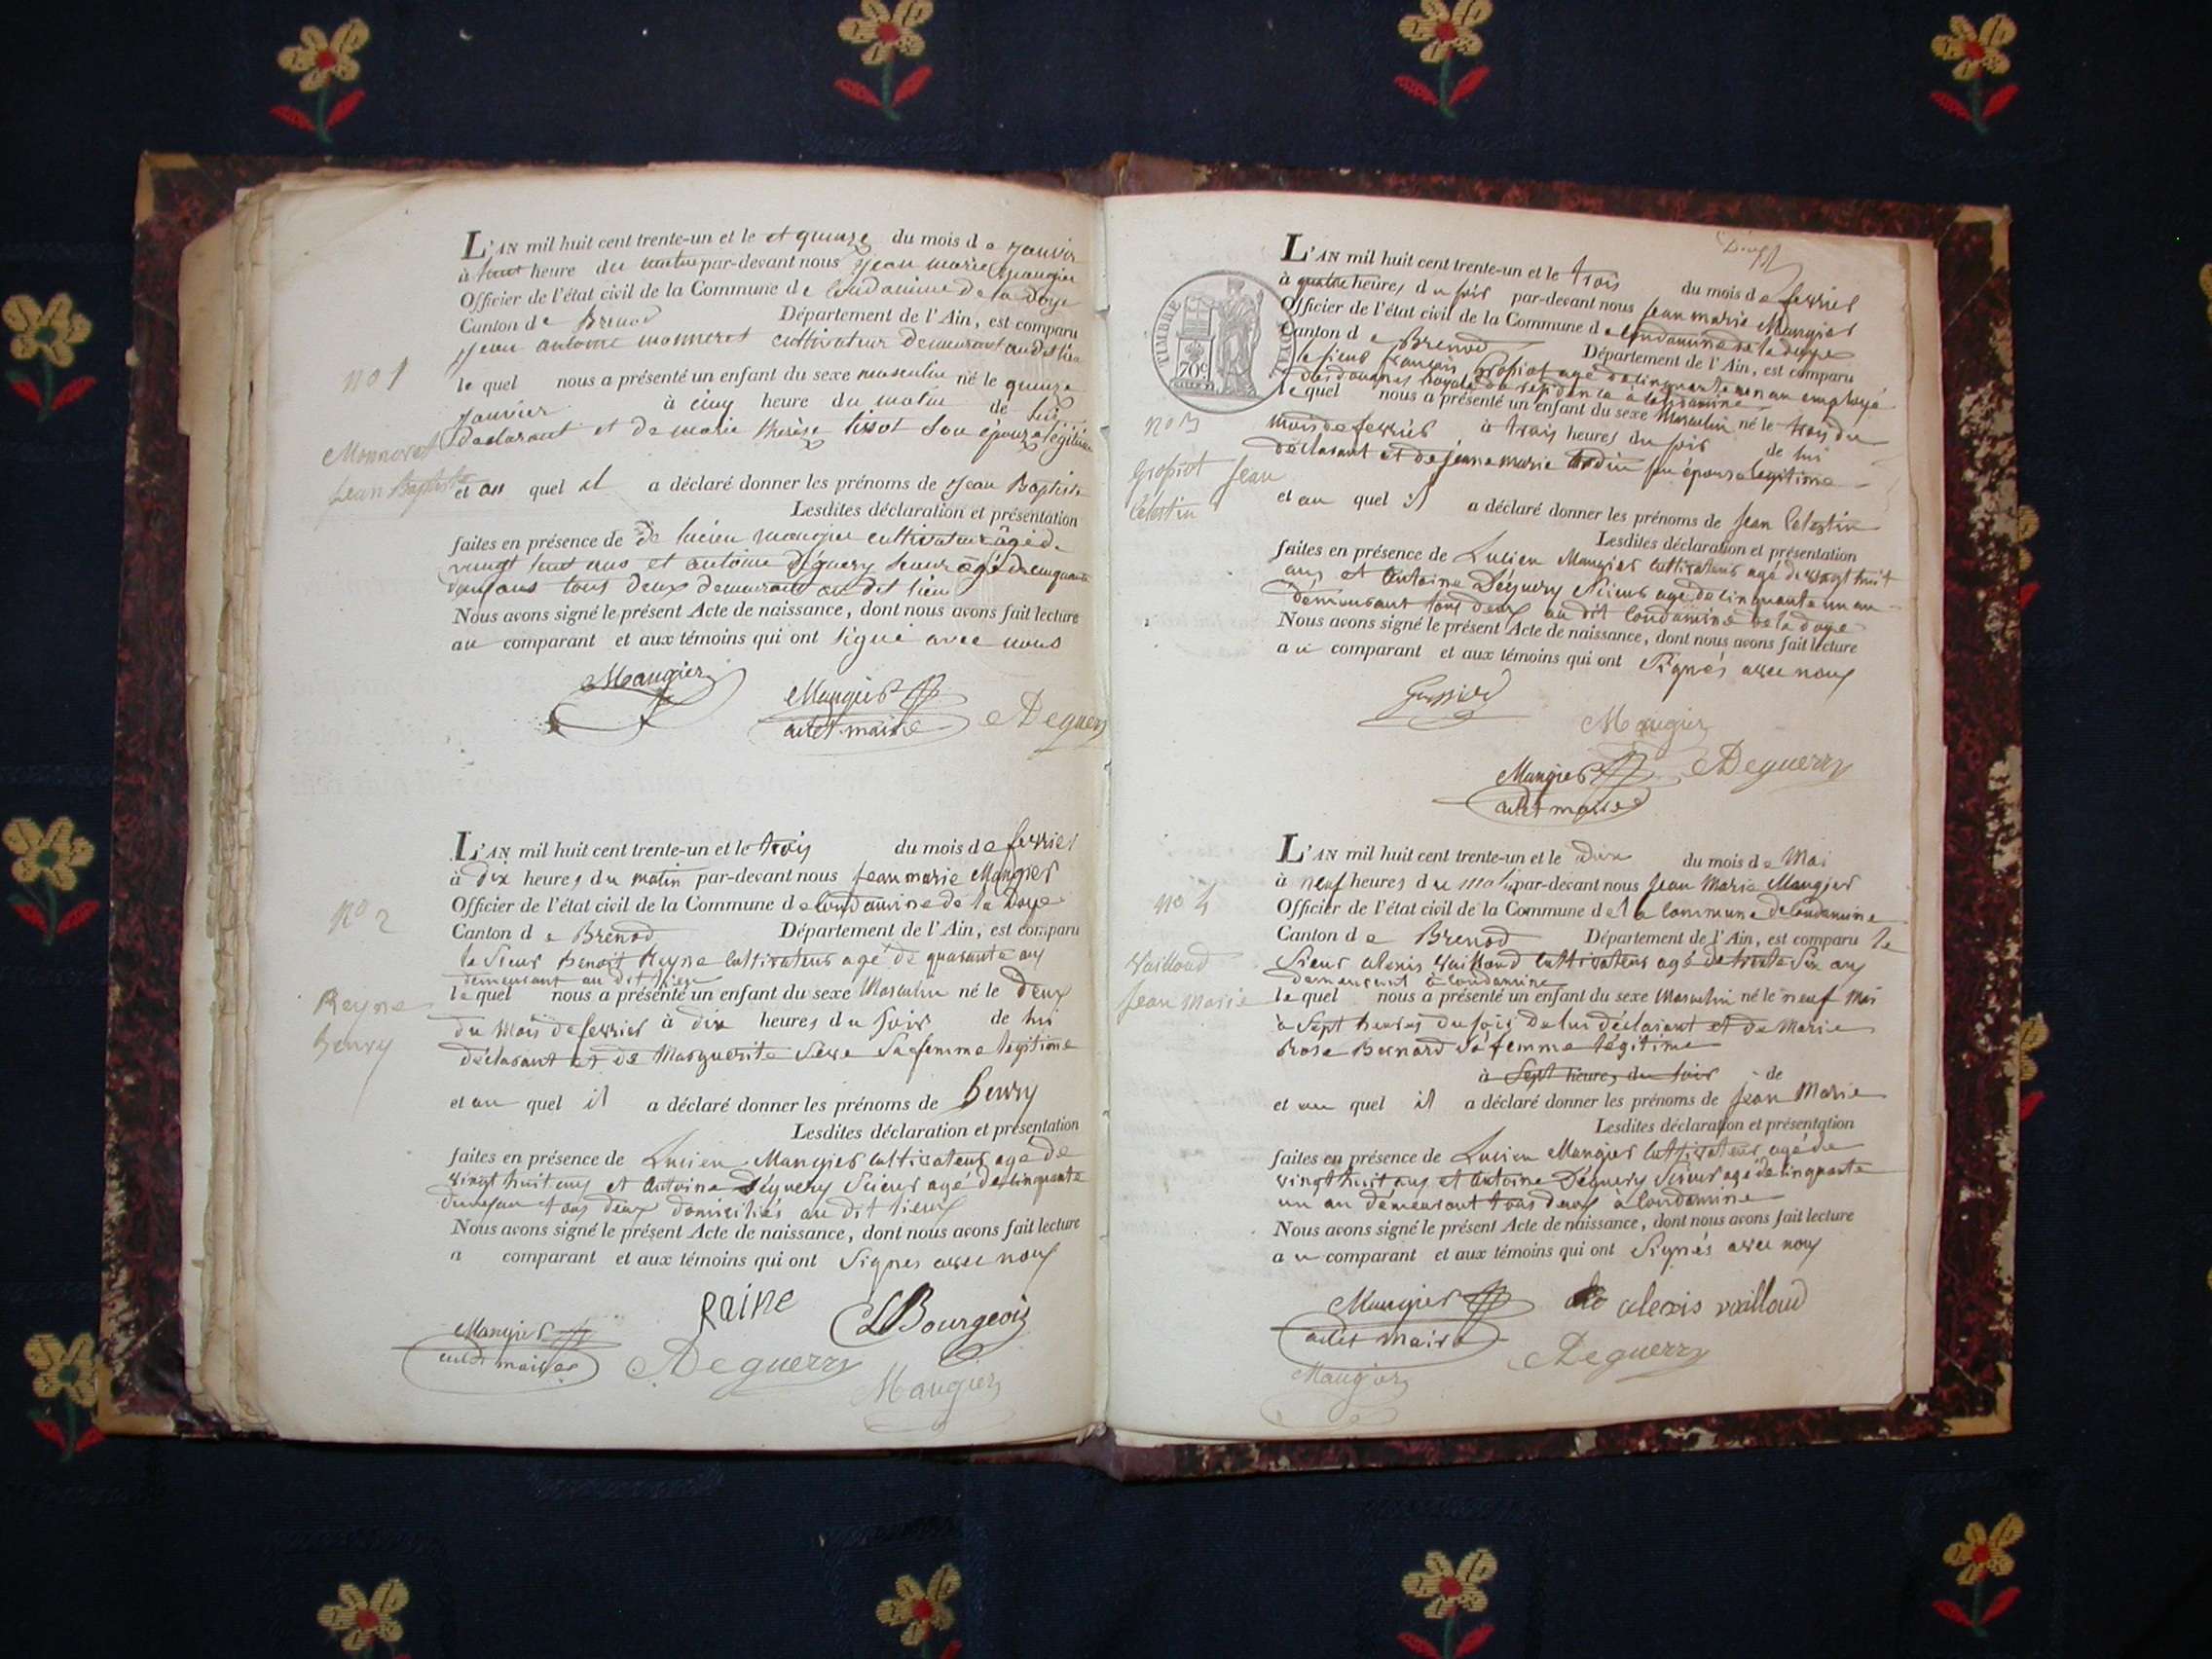 L'AN mil huit cent trente-un et le et quinze du mois de janvier
à huit heure du matin par-devant nous jean marie Maugier
Officier de l'état civil de la Commune de Condamine de la Doye
Canton de Brenod Département de l'Ain, est comparu
jean antoine monneret cultivateur demeurant audit lieu
no 1
le quel nous a présenté un enfant du sexe masculin né le quinze
janvier à cinq heure du matin de lui
declarant et de marie therèse tissot son épouse légitime
Monneret
Jean Baptiste
et au quel il a déclaré donner les prénoms de jean Baptiste
Lesdites déclaration et présentation
faites en présence de de lucien maugier cultivateur âgé de
vingt huit ans et antoine déguery scieur âgé de cinquante
ans tous deux demeurant audit lieu
Nous avons signé le présent Acte de naissance, dont nous avons fait lecture
au comparant et aux témoins qui ont signé avec nous
Maugier
Maugier
adet maire
Deguery
L'AN mil huit cent trente-un et le trois du mois de fevrier
à dix heures du matin par-devant nous jean marie Maugier
Officier de l'état civil de la Commune de Condamine de la Doye
no 2
Canton de Brenod Département de l'Ain, est comparu
le Sieur Benoit Reyne Cultivateur agé de quarante ans
demeurant au dit lieu
le quel nous a présenté un enfant du sexe Masculin né le deux
Reyne
henry
du mois de fevrier à dix heures du soir de lui
déclarant et de Marguerite Serre sa femme legitime
et au quel il a déclaré donner les prénoms de henry
Lesdites déclaration et présentation
faites en présence de Lucien Maugier Cultivateur agé de
vingt huit ans et Antoine Déguery Scieur agé de cinquante
tous deux domiciliés au dit lieux
Nous avons signé le présent Acte de naissance, dont nous avons fait lecture
a comparant et aux témoins qui ont Signés avec nous
Raine
LBourgeois
Maugier
adet maire
Deguerry
Maugier
L'AN mil huit cent trente-un et le trois du mois de fevrier
à quatre heures du soir par-devant nous jean marie Maugier
Officier de l'état civil de la Commune de Condamine de la doye
Canton de Brenod Département de l'Ain, est comparu
le sieur françois Grossiot agé de cinquante un an employé
des douanes royale de residence à Condamine
TIMBRE
70c
le quel nous a présenté un enfant du sexe Masculin né le trois du
no 3
mois de fevrier à trois heures du soir de lui
déclarant et de jeanne marie son épouse legitime
Grossiot Jean
Celestin
et au quel il a déclaré donner les prénoms de jean Celestin
Lesdites déclaration et présentation
faites en présence de Lucien Maugier Cultivateur agé de vingt huit
ans et Antoine Déguery Scieur agé de cinquante un an
demeurant tous deux au dit Condamine de la doye
Nous avons signé le présent Acte de naissance, dont nous avons fait lecture
au comparant et aux témoins qui ont Signés avec nous
Maugier
Maugier
adet maire
Deguerry
L'AN mil huit cent trente-un et le Dix du mois de Mai
à neuf heures du matin par-devant nous Jean Marie Maugier
no 4
Officier de l'état civil de la Commune de la Commune de Condamine
Canton de Brenod Département de l'Ain, est comparu le
Sieur Alexis Vailloud Cultivateur agé de trente Six ans
demeurant à Condamine
Vailloud
Jean Marie
le quel nous a présenté un enfant du sexe Masculin né le neuf Mai
à Sept heures du soir de lui déclarant et de Marie
Rose Bernard sa femme légitime
à Sept heures du soir de
et au quel il a déclaré donner les prénoms de Jean Marie
Lesdites déclaration et présentation
faites en présence de Lucien Maugier Cultivateur agé de
vingt huit ans et Antoine Déguery Scieur agé de cinquante
un an demeurant tous deux à Condamine
Nous avons signé le présent Acte de naissance, dont nous avons fait lecture
au comparant et aux témoins qui ont Signés avec nous
Maugier
adet maire
alexis vailloud
Deguerry
Maugier